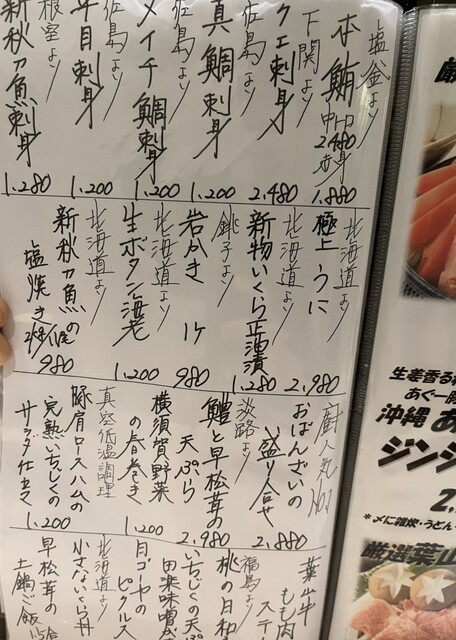 塩釜より
本鮪 中トロ 2.480
赤身 1.880
下関より
クエ刺身
2.480
佐島より
真鯛刺身
1.200
佐島より
メイチ鯛刺身
1.200
佐島より
平目刺身
1.200
根室より
新秋刀魚刺身
1.280
北海道より
極上うに
2.980
北海道より
新物いくら正油漬
1.280
銚子より
岩かき 1ケ
980
北海道より
生ボタン海老
1.200
北海道より
新秋刀魚の
塩焼き
980
厨人気No.1
おばんざいの
盛り合せ
2.880
淡路より
鱧と早松茸の
天ぷら
2.980
横須賀野菜
の春巻き
1.200
真空低温調理
豚肩ロースハムの
完熟いちじくの
サラダ仕立て
1.200
葉山牛
もも肉
ステ
福島より
桃の白和
いちじくの天ぷ
田楽味噌
白ゴーヤの
ピクルス
北海道より
小さないくら丼
早松茸の
土鍋ご飯
厳
生姜香る
あぐー
沖縄 あ
ジンジ
2.
*〆に雑炊・うどん
厳選葉山